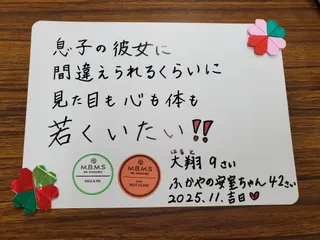 息子の彼女に
間違えられるくらいに
見た目も心も体も
若くいたい!!
はると
大翔 9さい
ふかやの安室ちゃん 42さい
2025.11.吉日
M.B.M.S
M.B.M.S